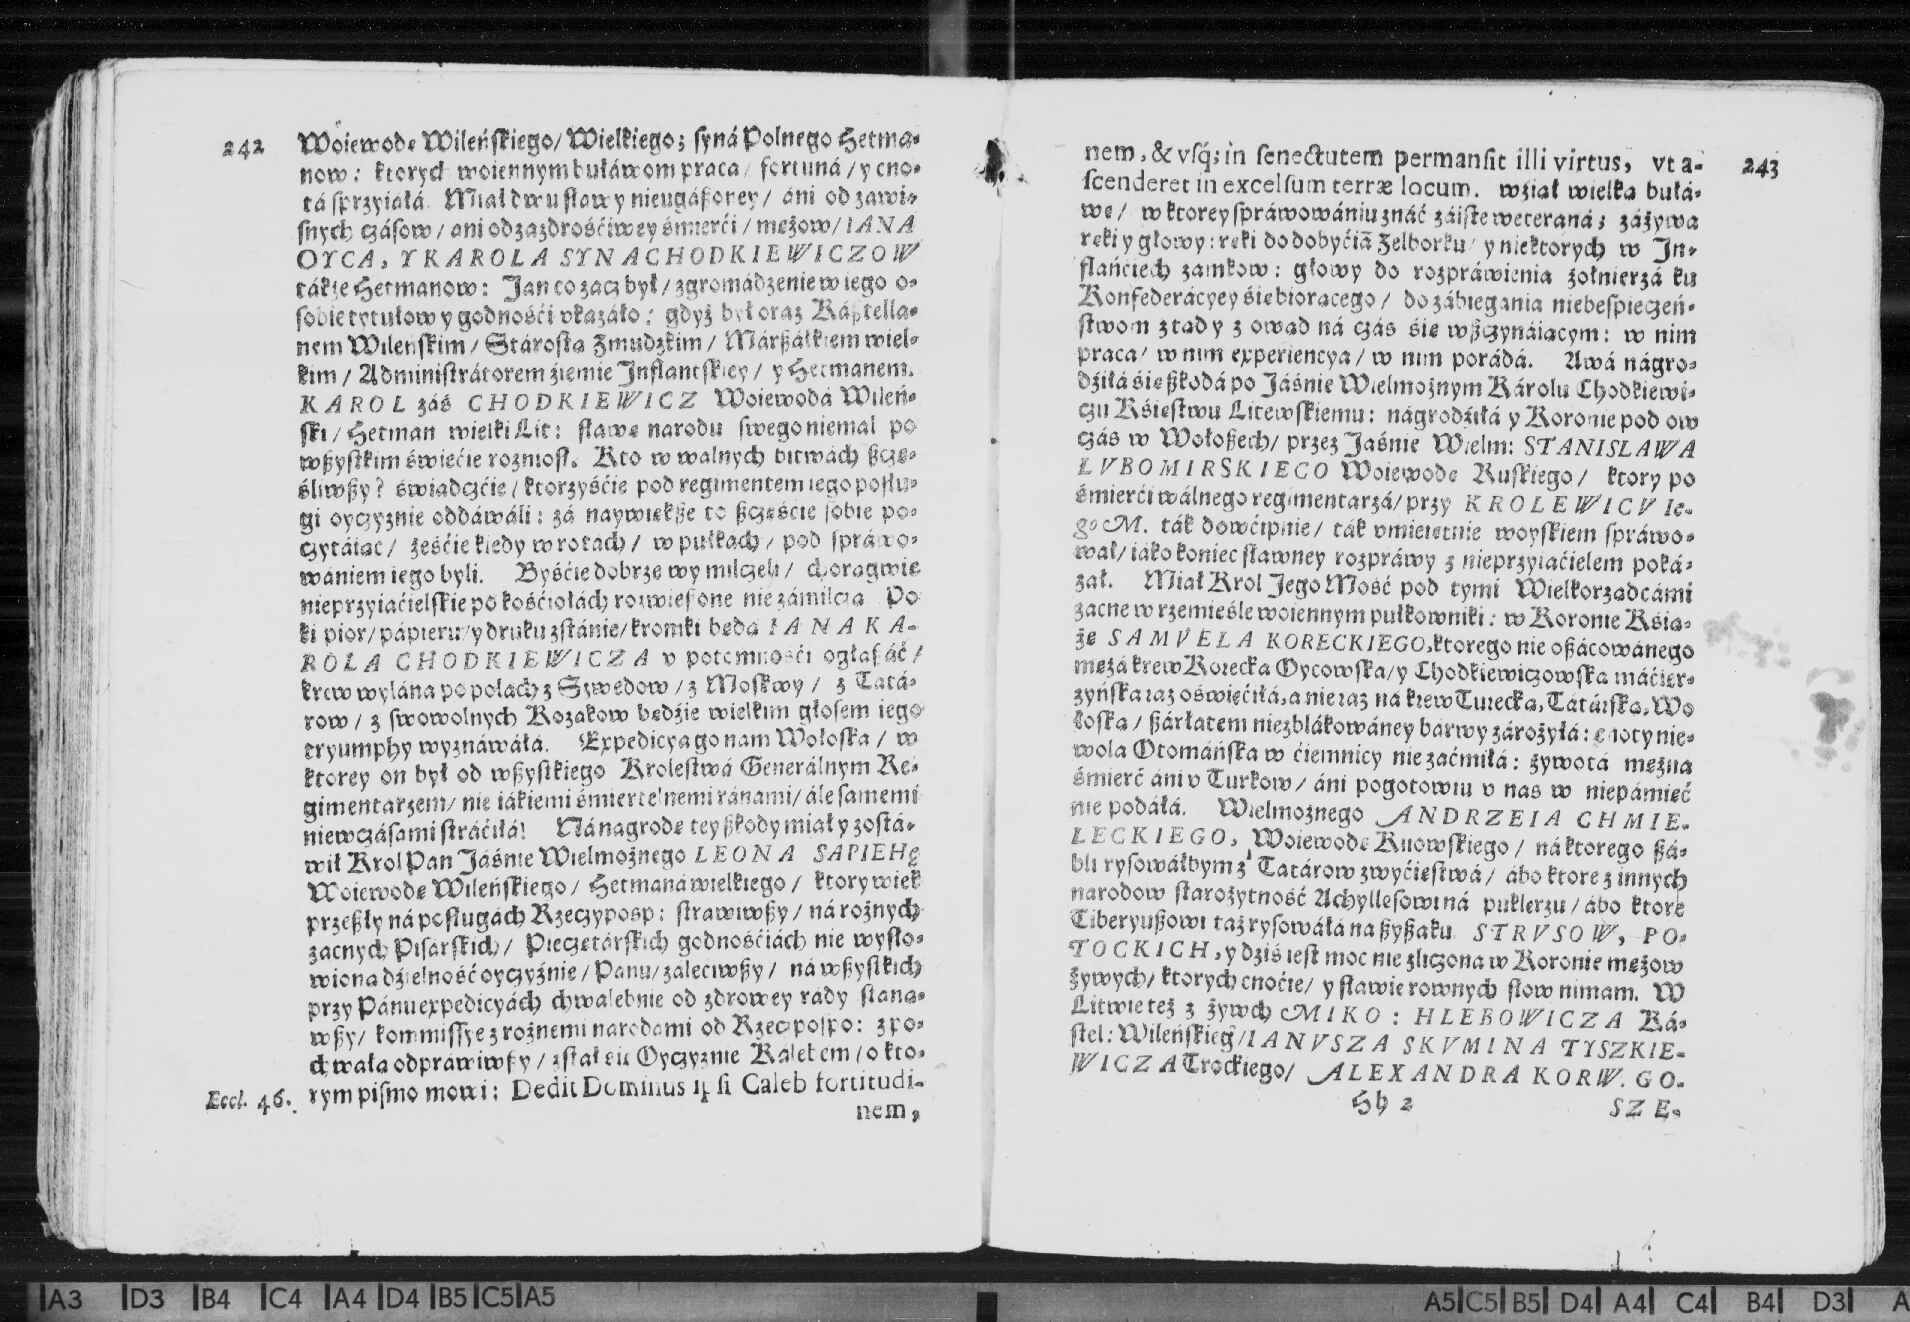 242
Woiewodę Wileńskiego/ Wielkiego; syná Polnego Hetma-
now: ktorych woiennym buławom praca/ fortuná/ y cno-
tá sprzyiáłá. Miał dwu sławy nieugászoney/ áni od zawi-
snych czásow/ ani od zazdrośćiwey śmierći/ mężow/ IANA
OYCA, Y KAROLA SYNA CHODKIEWICZOW
tákże Hetmanow: Jan co zacz był/ zgromádzenie w iego o-
sobie tytułow y godnośći vkazáło: gdyż był oraz Kásztella-
nem Wileńskim/ Stárostą Zmudzkim/ Márszáłkiem wiel-
kim/ Administrátorem źiemie Inflantskiey/ y Hetmanem.
KAROL záś CHODKIEWICZ Woiewodá Wileń-
ski/ Hetman wielki Lit: sławę narodu swego niemal po
wszystkim świećie rozniosł. Kto w walnych bitwách szczę-
śliwszy? świadczćie/ ktorzyśćie pod regimentem iego posłu-
gi oyczyznie oddáwáli: zá naywiększe to szczęśćie sobie po-
czytáiąc/ żeśćie kiedy w rotách/ w pułkach/ pod spráwo-
wániem iego byli. Byśćie dobrze wy milczeli/ chorągwie
nieprzyiaćielskie po kośćiołách rozwieszone nie zámilczą. Po
ki pior/ pápieru/ y druku zstánie/ kroniki będą IANA KA-
ROLA CHODKIEWICZA v potomnośći ogłaszáć/
krew wylána po polach z Szwedow/ z Moskwy/ z Tatá-
row/ z swowolnych Kozakow będźie wielkim głosem iego
tryumphy wyznáwáłá. Expedicya go nam Wołoska/ w
ktorey on był od wszystkiego Krolestwá Generálnym Re-
gimentarzem/ nie iákiemi śmiertelnemi ránami/ ále samemi
niewczásami stráćiłá! Ná nagrodę tey szkody miáły zostá-
wił Krol Pan Jáśnie Wielmożnego LEONA SAPIEHĘ
Woiewodę Wileńskiego/ Hetmaná wielkiego/ ktory wiek
przeszły ná posługách Rzeczyposp: strawiwszy/ ná rożnych
zacnych Pisarskich/ Pieczętárskich godnośćiách nie wysło-
wioną dźielność oyczyźnie/ Panu/ zaleciwszy/ ná wszystkich
przy Pánu expedicyách chwalebnie od zdrowey rády staną-
wszy/ kommissye z rożnemi narodami od Rzeczpospo: z po-
chwałą odpráwiwszy/ zstał się Oyczyznie Kalebem/ o kto-
Eccl. 46. rym pismo mowi: Dedit Dominus ipsi Caleb fortitudi-
nem,
243
nem, & vsq; in senectutem permansit illi virtus, vt a-
scenderet in excelsum terræ locum. wźiął wielką bułá-
wę/ w ktorey spráwowániu znáć záiste weteraná; záżywa
ręki y głowy: ręki do dobyćia Zelborku/ y niektorych w In-
flańćiech zamkow: głowy do rozpráwienia żołnierzá ku
Konfederácyey śię biorącego/ do zábiegania niebespieczeń-
stwom z tąd y z owąd ná czás śię wszczynáiącym: w nim
praca/ w nim experiencya/ w nim porádá. A wá nágro-
dźiłá śię szkodá po Jáśnie Wielmożnym Károlu Chodkiewi-
czu Kśięstwu Litewskiemu: nágrodźiłá y Koronie pod ow
czás w Wołoszech/ przez Jaśnie Wielm: STANISLAWA
LVBOMIRSKIEGO Woiewodę Ruskiego/ ktory po
śmierći wálnego regimentarzá/ przy KROLEWICV Ie-
go M. ták dowćipnie/ ták vmieiętnie woyskiem spráwo-
wał/ iáko koniec sławney rozpráwy z nieprzyiaćielem poká-
zał. Miał Krol Jego Mość pod tymi Wielkorządcámi
zacne w rzemieśle woiennym pułkowniki: w Koronie Kśią-
żę SAMVELA KORECKIEGO, ktorego nie oszácowánego
mężá krew Korecka Oycowska/ y Chodkiewiczowska máćier-
zyńska raz oświęćiłá, a nie raz na krew Turecką, Tátárską, Wo
łoską/ szárłatem niezblákowáney bárwy zárożyłá: cnoty nie-
wola Otománska w ćiemnicy nie záćmiłá: żywotá mężna
śmierć áni v Turkow/ áni pogotowiu v nas w niepámięć
nie podáłá. Wielmożnego ANDRZEIA CHMIE-
LECKIEGO, Woiewodę Kijowskiego/ ná ktorego szá-
bli rysowáłbym z Tatárow zwyćięstwá/ ábo ktore z innych
narodow starożytność Achyllesowi ná puklerzu/ ábo ktore
Tiberyuszowi táż rysowáłá na szyszaku. STRVSOW, PO-
TOCKICH, y dziś iest moc nie zliczona w Koronie mężow
żywych/ ktorych cnoćie/ y sławie rownych słow nimam. W
Litwie też z żywch MIKO: HLEBOWICZA Ká-
stel: Wileńskieg/ IANVSZA SKVMINA TYSZKIE-
WICZA Trockiego/ ALEXANDRA KORW. GO-
Hh 2 SZE-
A3 D3 B4 C4 A4 D4 B5 C5 A5
A5 C5 B5 D4 A4 C4 B4 D3 A